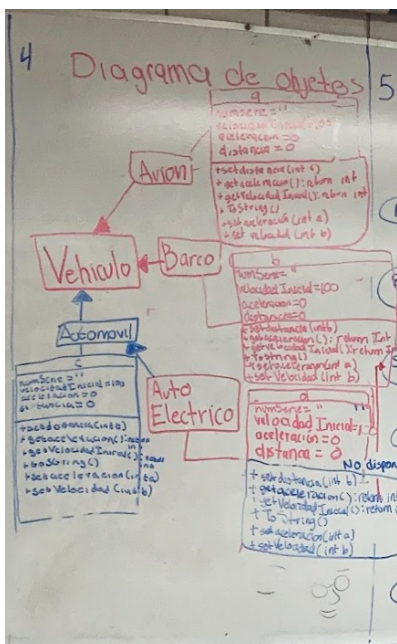 4
Diagrama de objetos
5
a
numSerie = ''
velocidad Inicial=100
aceleracion=0
distancia = 0
+setdistancia(int b)
+getaceleracion(): return int
+getVelocidad Inicial(): return int
+ToString()
+setaceleración(int a)
+set velocidad (int b)
Avion
Vehiculo
Barco
b
numSerie= ''
velocidad Inicial=100
aceleracion=0
distancia=0
+setdistancia(int b)
+getaceleracion(): return Int
+getVelocidad Inicial(): return In
+ToString()
+setaceleracion(int a)
+set Velocidad (int b)
Automovil
c
numSerie = ''
velocidad Inicial=100
aceleracion=0
distancia=0
+setdistancia(int a)
+getaceleracion(): return int
+getVelocidad Inicial(): return int
+toString()
+setaceleracion(int a)
+setVelocidad(int b)
Auto
Electrico
d
numSerie= ''
velocidad Inicial=
aceleración=0
distancia = 0
No dispon
+ setdistancia(int b)
+ getaceleracion(): return int
+ getVelocidad Inicial(): return i
+ ToString()
+ setaceleracion(int a)
+ setVelocidad (int b)